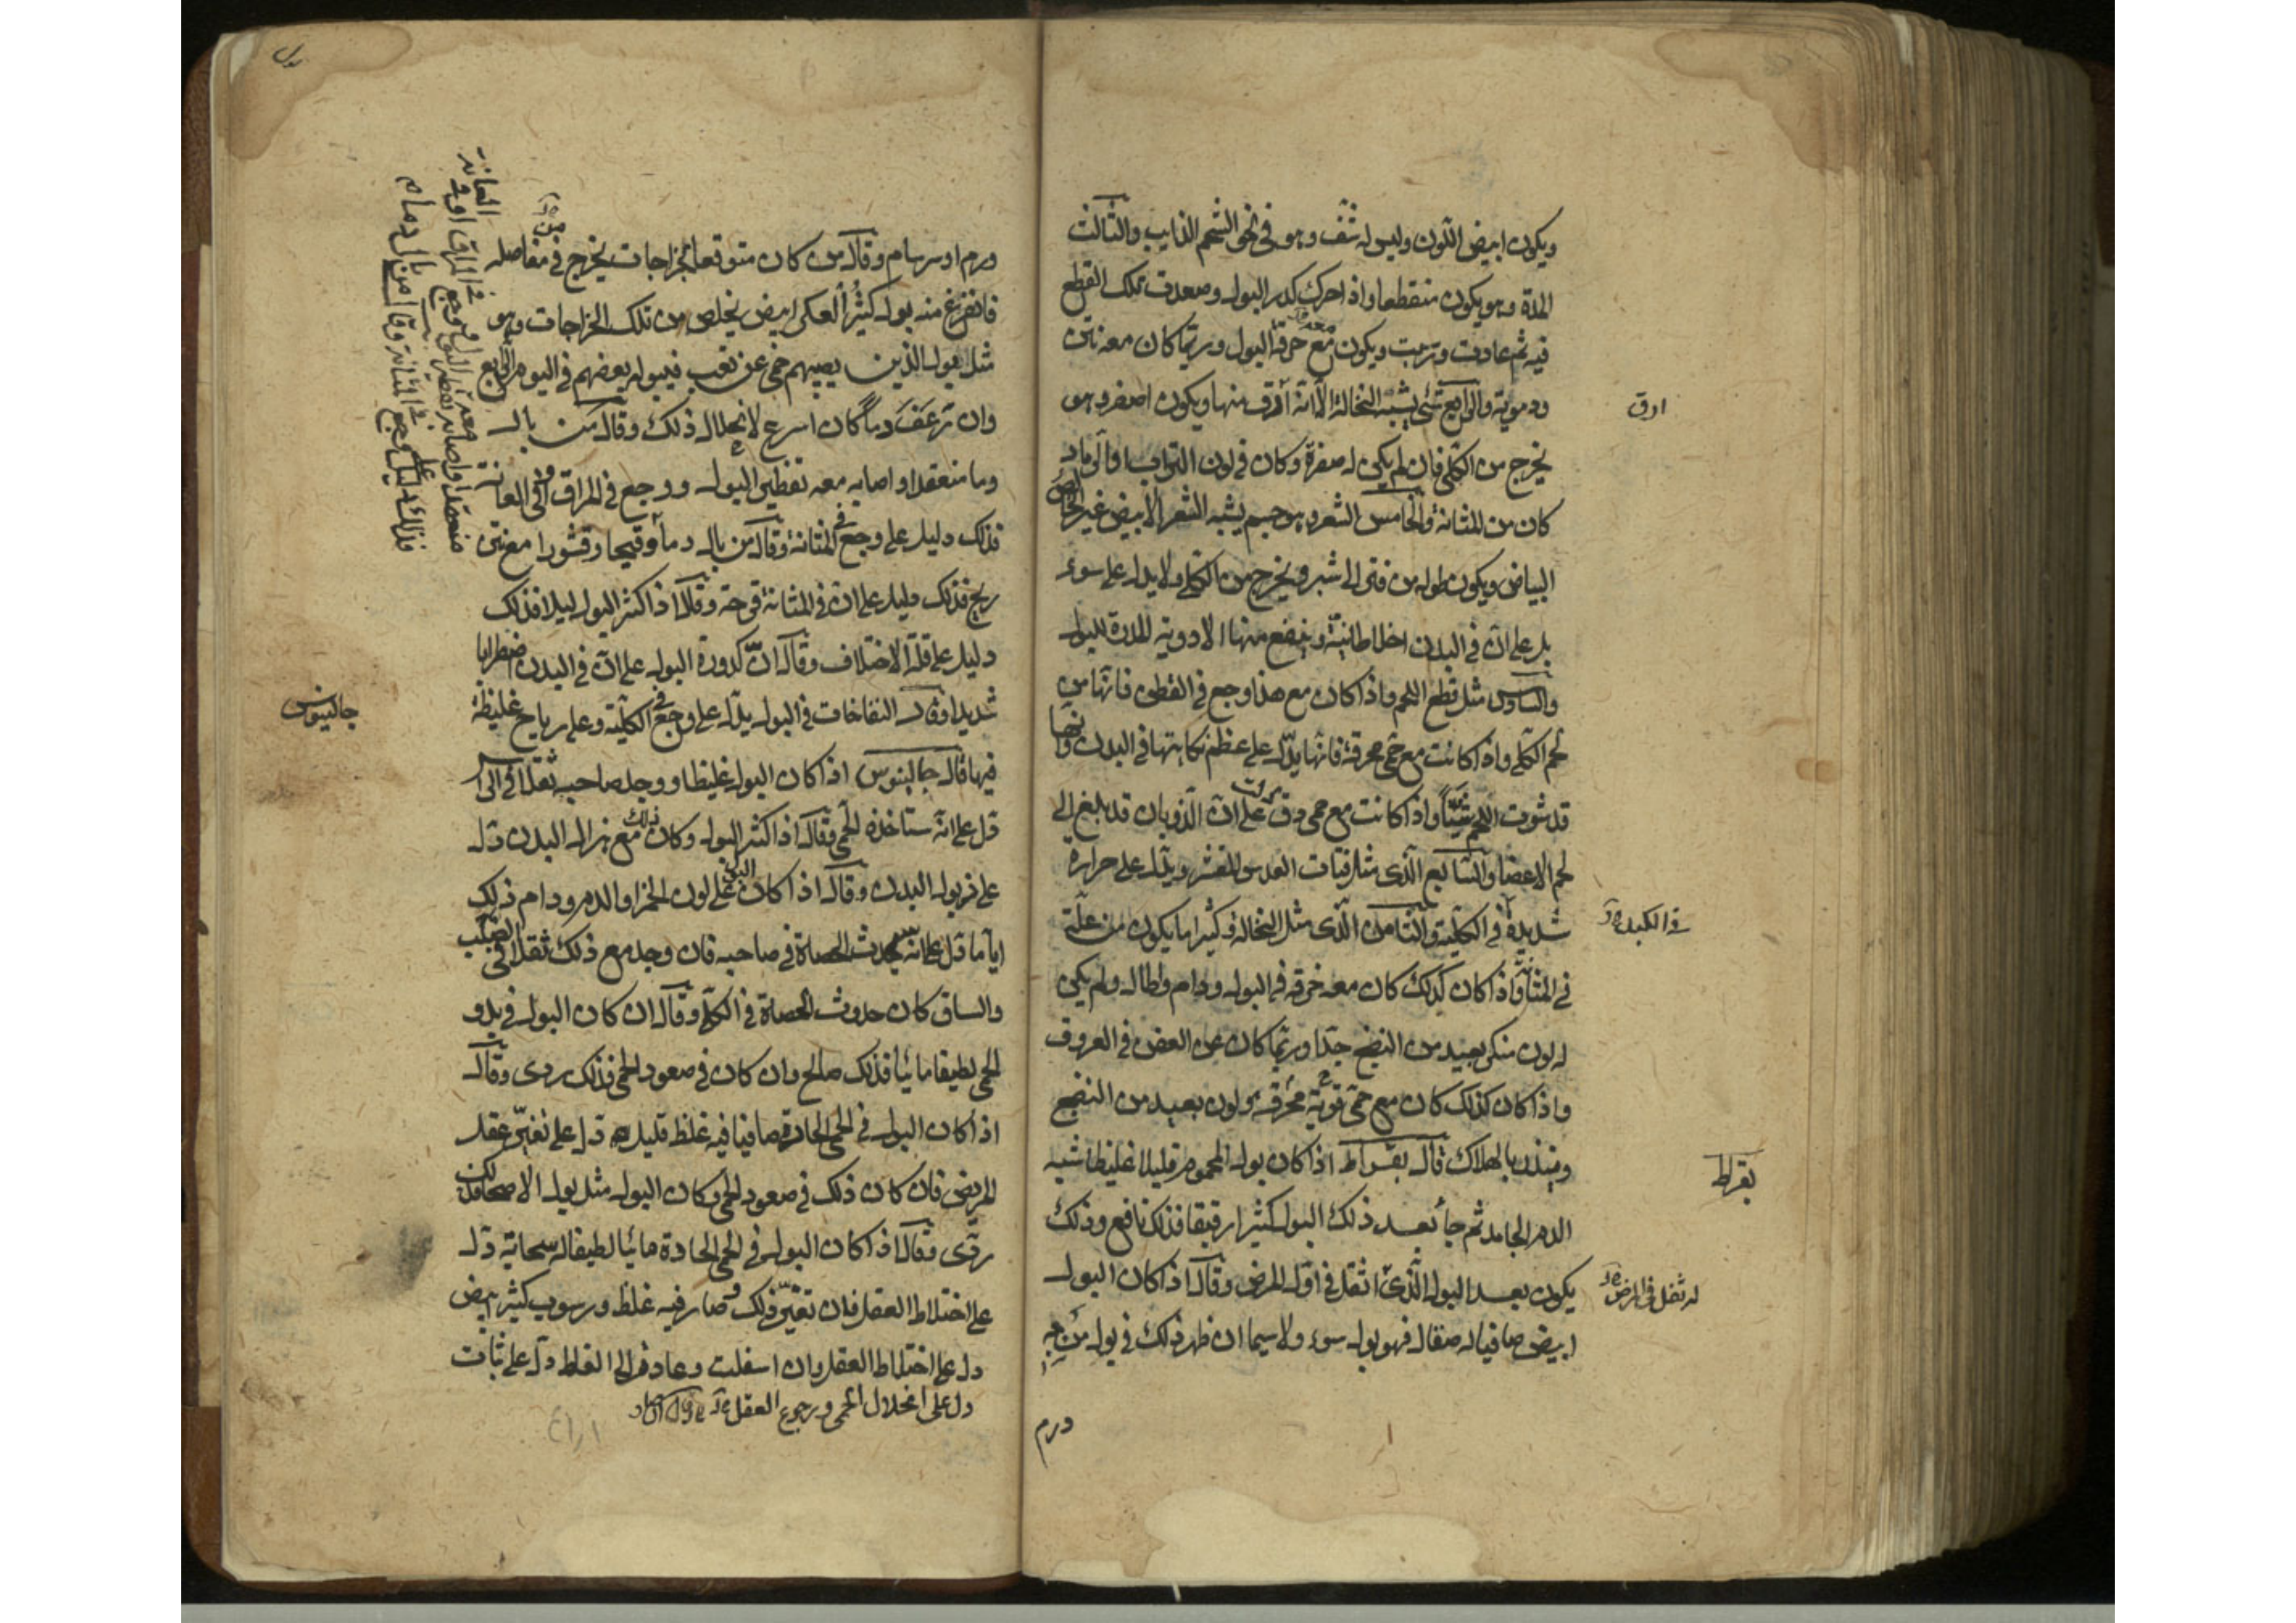 ويكون ابيض اللون وليس له ثفف وهو في نحو الشحم الذايب والثالث
المدة وهو يكون منقطعا واذا حرك كدر البول وصعدت تلك القطع
فيه ثم عادت ورسبت ويكون مع حرقة البول وربما كان معه نتن
ودموية والرابع شئ يشبه النخالة الا انه ادق منها ويكون اصفر وهو
ادق
يخرج من الكلى فان لم يكن له صفرة وكان في لون التراب او الرماد
كان من المثانة والخامس الشعر وهو جسم يشبه الشعر الابيض غير الخالص
البياض ويكون طوله من فتر الى شبر ويخرج من الكلى ولا يدل على سوء
بل على ان في البدن اخلاطا نية وينفع منها الادوية المدرة للبول
والسادس مثل قطع اللحم واذا كان مع هذا وجع في القطن فانها من
لحم الكلى واذا كانت مع حمى محرقة فانها يدل على عظم نكايتها في البدن وانها
قد شوت اللحم شيا واذا كانت مع حمى دق على ان الذوبان قد بلغ الى
لحم الاعضا والسابع الذى مثل فتات العدس المقشر ويدل على حرارة
شديدة في الكلية والثامن الذى مثل النخالة وكثيرا ما يكون من علة
في الكبد
في المثانة واذا كان كذلك كان معه حرقة في البول ودام وطال ولم يكن
له لون منكر بعيد من النضج جدا وربما كان عن العفن في العروق
واذا كان كذلك كان مع حمى قوية محرقة ولون بعيد من النضج
وينذر بالهلاك قال بقراط اذا كان بول المحموم قليلا غليظا شبه
بقراط
الدم الجامد ثم جا بعد ذلك البول كثيرا رقيقا فذلك نافع وذلك
يكون بعد البول الذى اثقل في اول المرض وقال اذا كان البول
له ثفل في المرض
ابيض صافيا له صقال فهو بول سوء ولا سيما ان ظهر ذلك في بول من به
ورم
ورم او سرسام وقال من كان متوقعا لخراجات يخرج في مفاصله
فانفرغ منه بول كثير العكر ابيض يخلص من تلك الخراجات وهو
مثل بول الذين يصيبهم حمى عن تعب فيبول بعضهم في اليوم الرابع
وان رعف دما كان اسرع لانحلال ذلك وقال من بال
دما منعقدا واصابه معه تقطير البول ووجع في المراق او في العانة
فذلك دليل على وجع في المثانة وقال من بال دما وقيحا وقشورا معه نتن
ريح فذلك دليل على ان في المثانة قرحة وقال اذا كثر البول ليلا فذلك
دليل على قلة الاختلاف وقال ان كدورة البول على ان في البدن اضطرابا
شديدا وقال النفاخات في البول يدل على وجع في الكلية وعلى رياح غليظة
جالينوس
فيها قال جالينوس اذا كان البول غليظا ووجد صاحبه ثقلا في الراس
دل على انه ستاخذه الحمى وقال اذا كثر البول وكان ذلك مع هزال البدن دل
على ذبول البدن وقال اذا كان البول على لون الخمر او الدم ودام ذلك
اياما دل على انه سيحدث الحصاة في صاحبه فان وجد مع ذلك ثقلا في الصلب
والساق كان حدوث الحصاة في الكلى وقال ان كان البول في بدو
الحمى لطيفا مائيا فذلك صالح وان كان في صعود الحمى فذلك ردى وقال
اذا كان البول في الحمى الحادة صافيا فيه غلظ قليل دل على تغير عقل
المريض فان كان ذلك في صعود الحمى وكان البول مثل بول الاصحا
ردى وقال اذا كان البول في الحمى الحادة مائيا لطيفا له سحابة دل
على اختلاط العقل فان تغير ذلك وصار فيه غلظ ورسوب كثير ابيض
دل على اختلاط العقل وان اسفلت وعاد الى الغلظ دل على ثبات
دل على انحلال الحمى ورجوع العقل